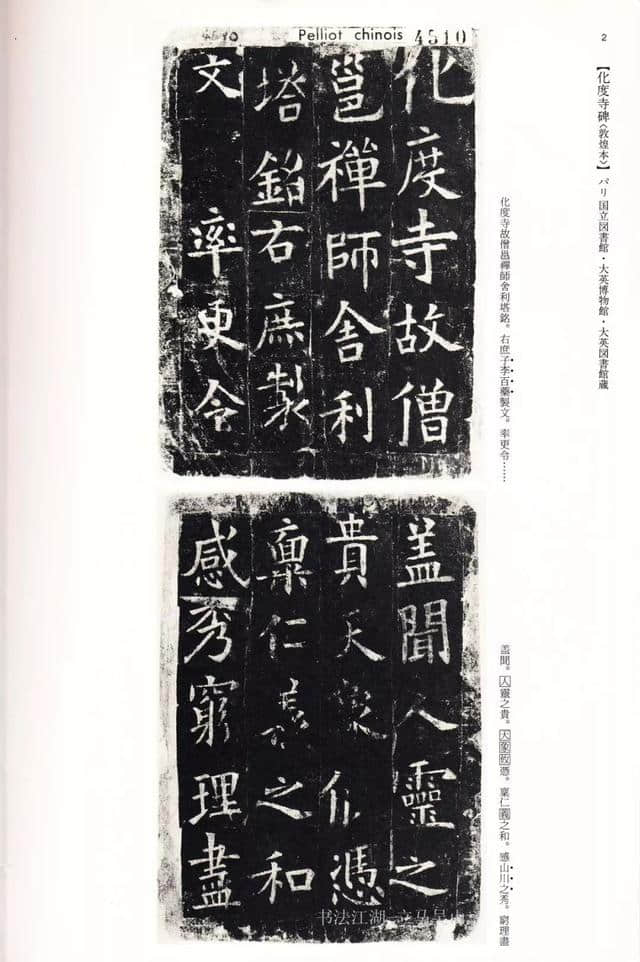 2
【化度寺碑〈敦煌本〉】パリ国立図書館・大英博物館・大英図書館蔵
Pelliot chinois 4510
化度寺故僧
邕禪師舍利
塔銘右庶製
文率更令
化度寺故僧邕禪師舍利塔銘。右庶子李百藥製文。率更令……
盖聞人靈之
貴天象攸憑
稟仁義之和
感秀窮理盡
盖聞。人靈之貴。天象攸憑。稟仁義之和。感山川之秀。窮理盡